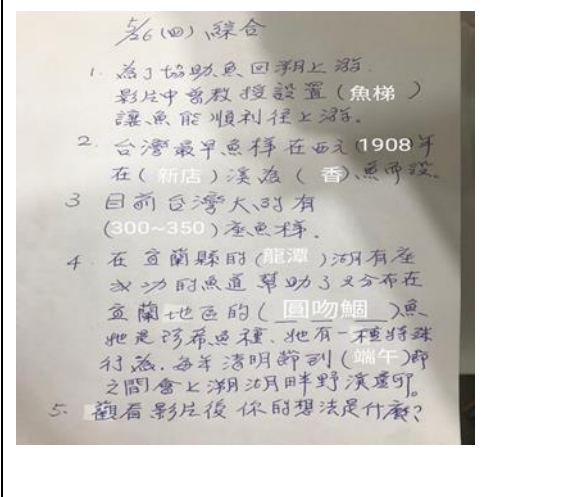 5/26(四)綜合
1. 為了協助魚回溯上游.
影片中曾教授設置(魚梯)
讓魚能順利往上游。
2. 台灣最早魚梯在西元1908年
在(新店)溪為(香)魚而設。
3 目前台灣大約有
(300~350)座魚梯.
4. 在宜蘭縣的(龍潭)湖有座
成功的魚道幫助了只分布在
宜蘭地區的(圓吻鯝)魚
她是珍希魚種.她有一種特殊
行為.每年清明節到(端午)節
之間會上溯湖畔野溪產卵。
5. 觀看影片後你的想法是什麼?